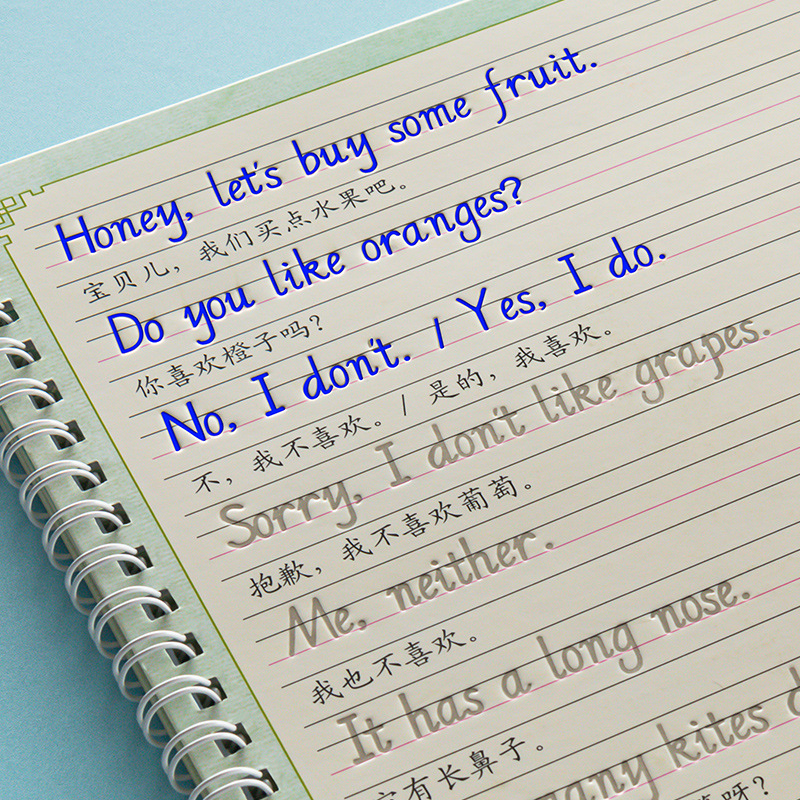 Honey, let's buy some fruit.
宝贝儿，我们买点水果吧。
Do you like oranges?
你喜欢橙子吗？
No, I don't. / Yes, I do.
不，我不喜欢。/ 是的，我喜欢。
Sorry, I don't like grapes.
抱歉，我不喜欢葡萄。
Me, neither.
我也不喜欢。
It has a long nose.
有长鼻子。
many kites
呀？